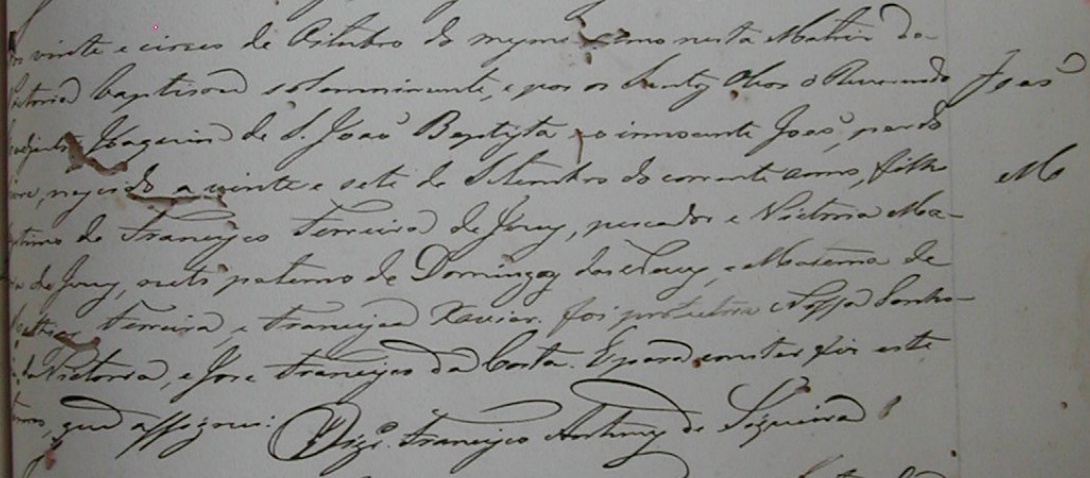 vinte e cinco de Oitubro do mesmo anno nesta Matriz da
Victoria baptisou solemnimente, e pos os Santos Oleos o Reverendo
Joaõ
Joaquim de S. Joaõ Baptista, o innocente Joaõ, pardo
nascido a vinte e sete de Setembro do corrente anno, filho
de Francisco Ferreira de Jesus, pescador e Victoria Ma-
de Jesus, neto paterno de Domingos das Neves, e Materno de
Ferreira, e Francisca Xavier. foi protectora Nossa Senho-
da Victoria, e Jose Francisco da Costa. E para constar fiz este
que assignei: Francisco Antonio de Siqueira